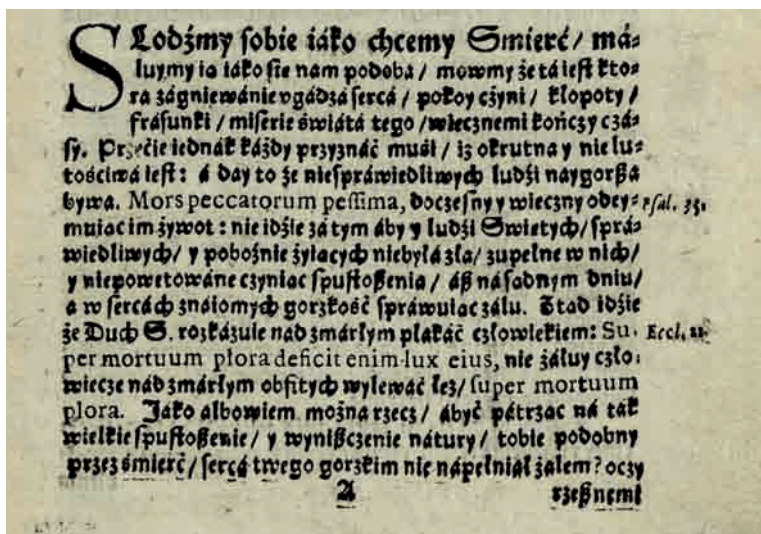 SLodźmy sobie iáko chcemy Smierć/ má⸗
luymy ią iáko sie nam podoba/ mowmy że tá iest kto⸗
ra zágniewánie vgadza sercá/ pokoy czyni/ kłopoty/
frásunki/ miserie świátá tego/ wiecznemi kończy czá⸗
sy. Przećie iednák káżdy przyznáć muśi/ iż okrutna y nie lu⸗
tośćiwa iest: á day to że niespráwiedliwych ludźi naygorßa
bywa. Mors peccatorum pessima, doczesny y wieczny obey⸗ Psal. 33.
muiac im żywot: nie idźie zá tym áby y ludźi Swietych/ sprá⸗
wiedliwych/ y pobożnie żyiacych niebyłá zła/ zupełne w nich/
y niepowetowáne czyniac spustoßenia/ áß ná sadnym dniu/
a w sercách znáiomych gorzkość spráwuiac żalu. Ztad idźie
że Duch S. rozkázuie nád zmárłym płákáć człowiekiem: Su⸗ Eccl. 22.
per mortuum plora deficit enim lux eius, nie żáłuy czło⸗
wiecze nád zmárłym obfitych wylewáć łez/ super mortuum
plora. Jáko álbowiem można rzecz/ ábyć pátrzac ná ták
wielkie spustoßenie/ y wynißczenie nátury/ tobie podobny
przez śmierć/ sercá twego gorzkim nie nápełniał żalem? oczy
A rzeßnemi